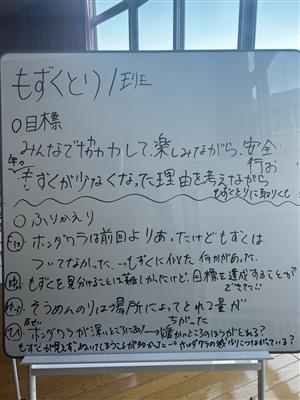 もずくとり1班
〇目標
みんなで協力して、楽しみながら、安全
行お
もずくが少なくなった理由を考えながら
もずくとりに取りくも
〇ふりかえり
ホンダワラは前回よりあったけどもずくは
ついてなかった。→もずくに似た何かがあった。
もずくを見分けることは難しかったけど、目標を達成することが
できてた。
そうめんのりは場所によってとれる量が
ちがった
ひ なぜ
ホンダワラが深いところにあり→暖かいところのほうがとれる?
もずくが見えず、ぬいてしまうことが多かった→ホンダワラの